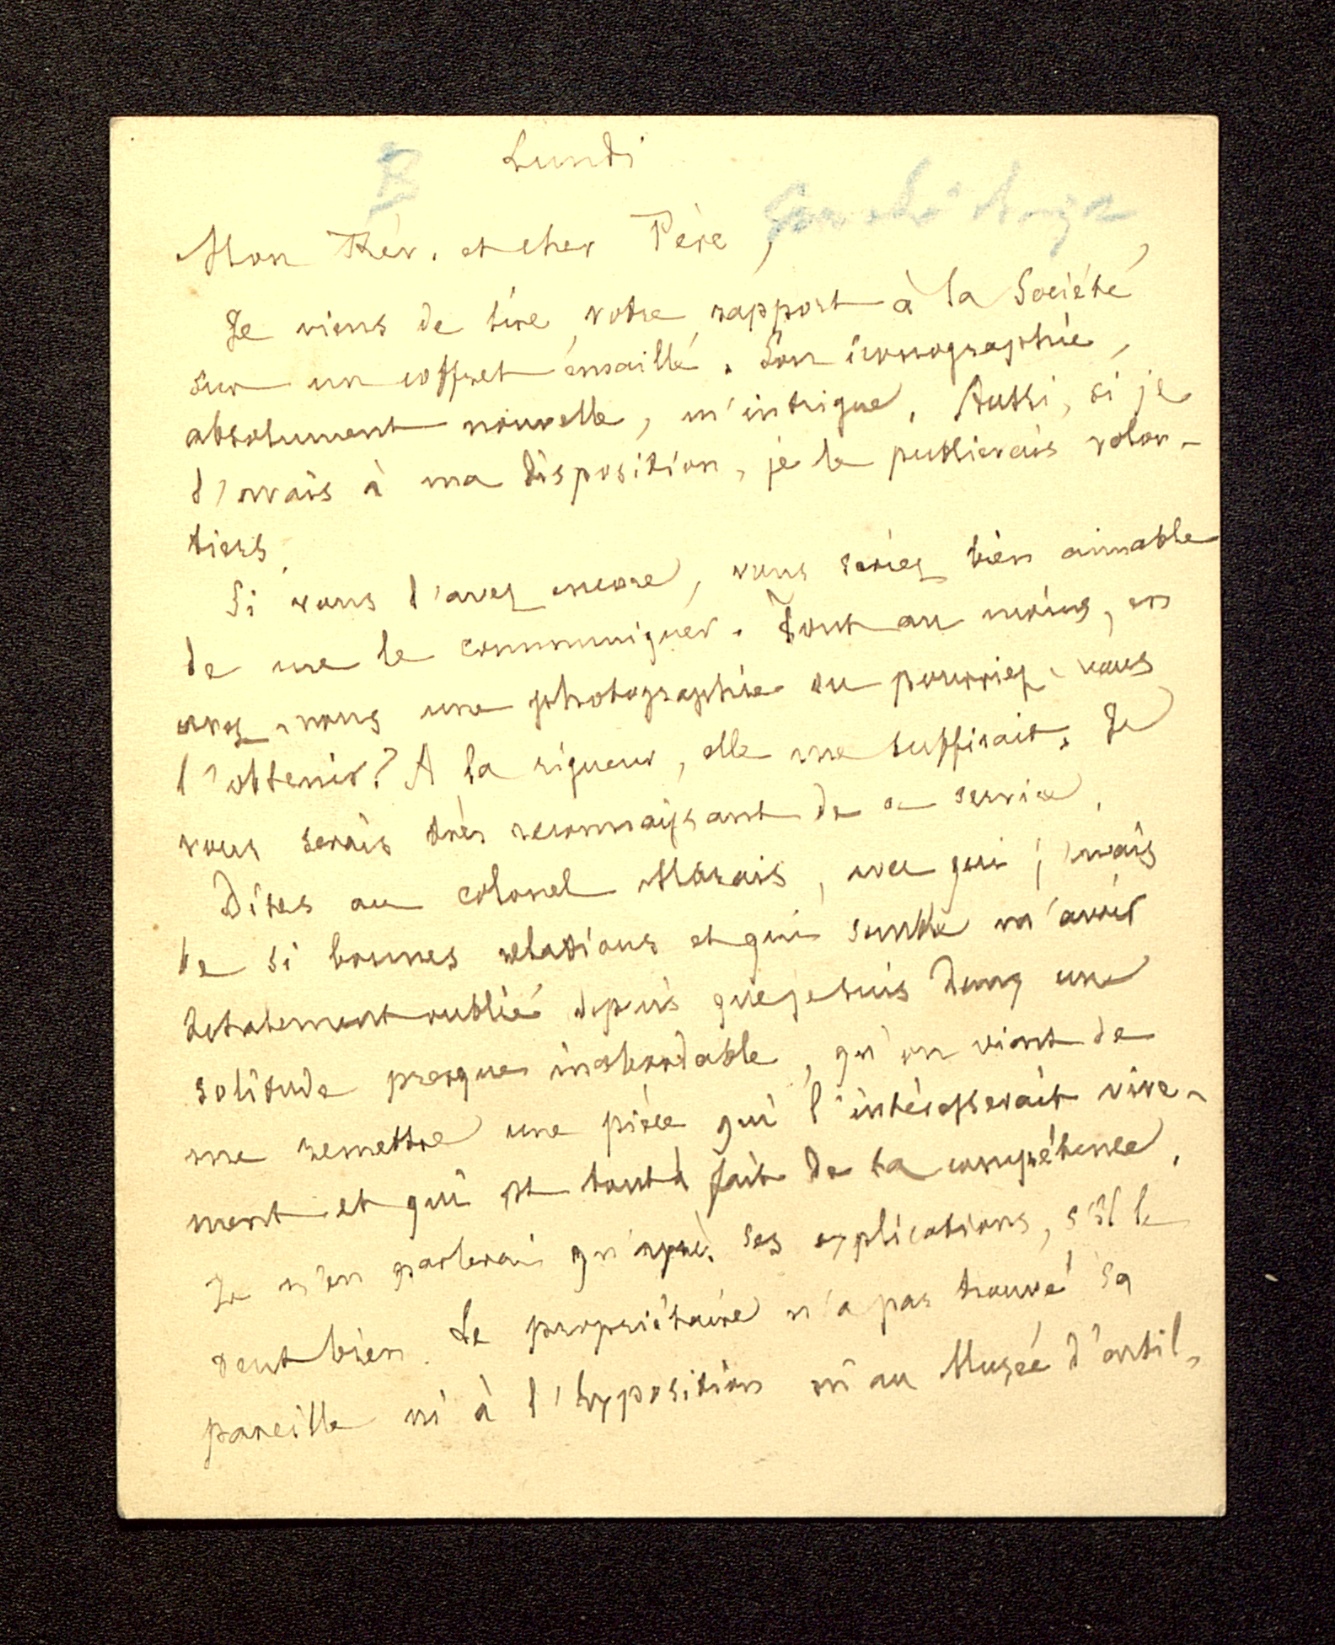 Lundi
B
Mon Rév. et cher Père,
Je viens de lire votre rapport à la Société
sur un coffret émaillé. Son iconographie,
absolument nouvelle, m'intrigue. Aussi, si je
l'avais à ma disposition, je le publierais volon-
tiers.
Si vous l'avez encore, vous seriez bien aimable
de me le communiquer. Tout au moins, en
avez-vous une photographie ou pourriez-vous
l'obtenir? A la rigueur, elle me suffirait. Je
vous serais très reconnaissant de ce service.
Dites au colonel Marais, avec qui j'avais
de si bonnes relations et qui semble m'avoir
totalement oublié depuis que je suis dans une
solitude presque inabordable, qu'on vient de
me remettre une pièce qui l'intéresserait vive-
ment et qui est tout à fait de sa compétence.
Je n'en parlerai qu'après ses explications, s'il le
veut bien. Le propriétaire n'a pas trouvé sa
pareille ni à l'Exposition ni au Musée d'artil-